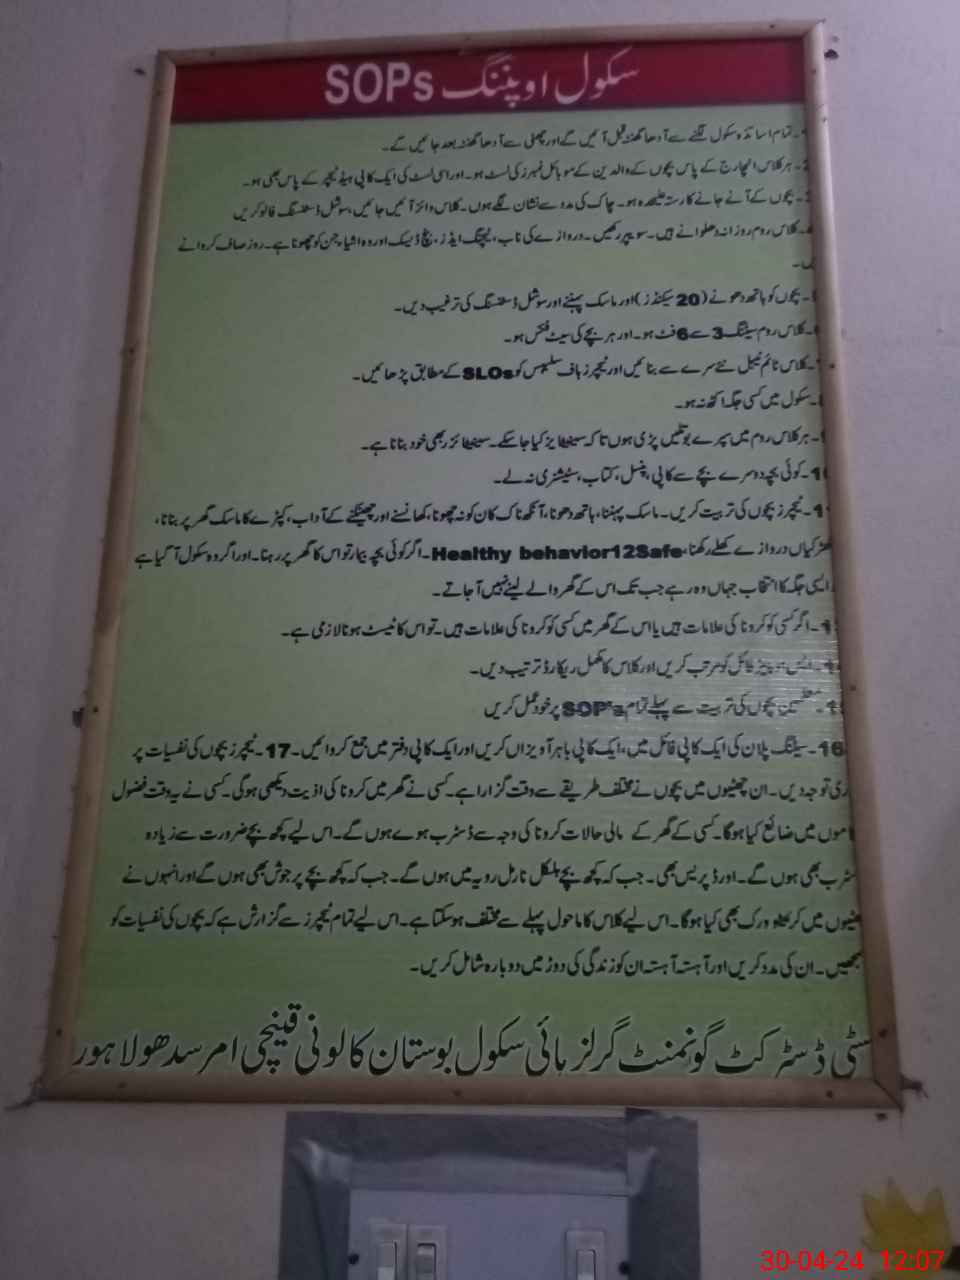 سکول اوپننگ SOPs
۔تمام اساتذہ سکول لگنے سے آدھا گھنٹہ قبل آئیں گے اور چھٹی سے آدھا گھنٹہ بعد جائیں گے۔
۔ہر کلاس انچارج کے پاس بچوں کے والدین کے موبائل نمبرز کی لسٹ ہو۔ اور اسی لسٹ کی ایک کاپی ہیڈ ٹیچر کے پاس بھی ہو۔
۔بچوں کے آنے جانے کا رستہ علیحدہ ہو۔ چاک کی مدد سے نشان لگے ہوں۔ کلاس وائز آئیں جائیں، سوشل ڈسٹنسنگ فالو کریں
۔کلاس روم روزانہ دھلوانے ہیں۔ سویپر رکھیں۔ دروازے کی ناب، ٹیچنگ ایڈز، بنچ ڈیسک اور وہ اشیا جن کو چھونا ہے۔ روز صاف کروانے
۔
۔بچوں کو ہاتھ دھونے (20 سیکنڈز) اور ماسک پہننے اور سوشل ڈسٹنسنگ کی ترغیب دیں۔
۔کلاس روم سیٹنگ 3 سے 6 فٹ ہو۔ اور ہر بچے کی سیٹ فکس ہو۔
۔کلاس ٹائم ٹیبل نئے سرے سے بنائیں اور ٹیچرز ہاف سلیبس کو SLOs کے مطابق پڑھائیں۔
۔سکول میں کسی جگہ اکٹھ نہ ہو۔
۔ہر کلاس روم میں سپرے بوتلیں پڑی ہوں تاکہ سینیٹایز کیا جا سکے۔ سینیٹائزر بھی خود بنانا ہے۔
۔کوئی بچہ دوسرے بچے سے کاپی، پنسل، کتاب، سٹیشنری نہ لے۔
۔ٹیچرز بچوں کی تربیت کریں۔ ماسک پہننا، ہاتھ دھونا، آنکھ ناک کان کو نہ چھونا، کھانسنے اور چھینکنے کے آداب، کپڑے کا ماسک گھر پر بنانا،
کھڑکیاں دروازے کھلے رکھنا، Healthy behavior12Safe۔ اگر کوئی بچہ بیمار تو اس کا گھر پر رہنا۔ اور اگر وہ سکول آ گیا ہے
ایسی جگہ کا انتخاب جہاں وہ رہے جب تک اس کے گھر والے لینے نہیں آ جاتے۔
۔اگر کسی کو کرونا کی علامات ہیں یا اس کے گھر میں کسی کو کرونا کی علامات ہیں۔ تو اس کا ٹیسٹ ہونا لازمی ہے۔
۔ایس او پیز فائل کو مرتب کریں اور کلاس کا مکمل ریکارڈ ترتیب دیں۔
۔معلمین بچوں کی تربیت سے پہلے تمام SOP's پر خود عمل کریں
16۔سیٹنگ پلان کی ایک کاپی فائل میں، ایک کاپی باہر آویزاں کریں اور ایک کاپی دفتر میں جمع کروائیں۔ 17۔ٹیچرز بچوں کی نفسیات پر
توجہ دیں۔ ان چھٹیوں میں بچوں نے مختلف طریقے سے وقت گزارا ہے۔ کسی نے گھر میں کرونا کی اذیت دیکھی ہو گی۔ کسی نے یہ وقت فضول
میں ضائع کیا ہوگا۔ کسی کے گھر کے مالی حالات کرونا کی وجہ سے ڈسٹرب ہوے ہوں گے۔ اس لیے کچھ بچے ضرورت سے زیادہ
بھی ہوں گے۔ اور ڈپریس بھی۔ جب کہ کچھ بچے بالکل نارمل رویہ میں ہوں گے۔ جب کہ کچھ بچے پر جوش بھی ہوں گے اور انہوں نے
میں کریٹو ورک بھی کیا ہوگا۔ اس لیے کلاس کا ماحول پہلے سے مختلف ہو سکتا ہے۔ اس لیے تمام ٹیچرز سے گزارش ہے کہ بچوں کی نفسیات کو
سمجھیں۔ ان کی مدد کریں اور آہستہ آہستہ ان کو زندگی کی دوڑ میں دوبارہ شامل کریں۔
سٹی ڈسٹرکٹ گورنمنٹ گرلز ہائی سکول بوستان کالونی قینچی امرسدھو لاہور
30-04-24 12:07